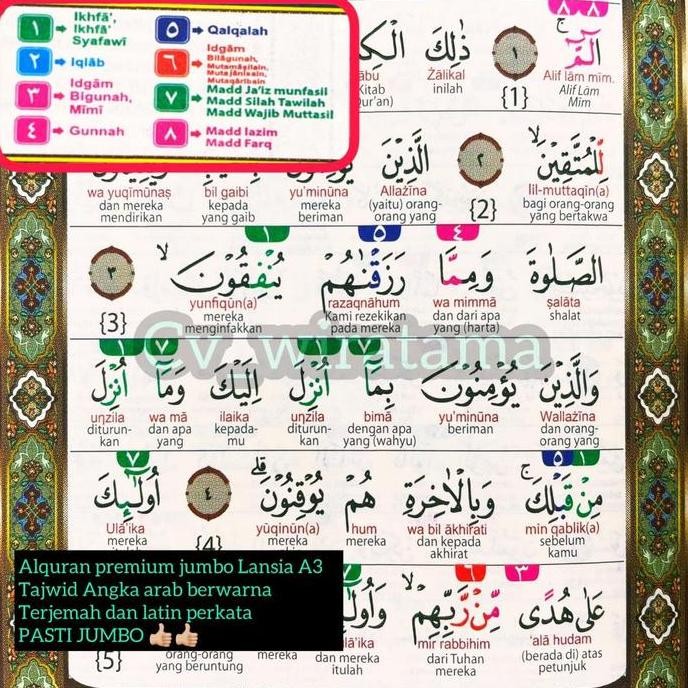 ١ Ikhfā', Ikhfā' Syafawī
٢ Iqlāb
٣ Idgām Bigunah, Mīmī
٤ Gunnah
٥ Qalqalah
٦ Idgām Bilāgunah, Mutamāṡilain, Mutajānisain, Mutaqāribain
٧ Madd Ja'iz munfasil Madd Silah Tawilah Madd Wajib Muttasil
٨ Madd lazim Madd Farq
٨ ٨
الٓمّٓ ۚ ١ ذٰلِكَ
Alif lām mīm. Żālikal
Alif Lām Mīm {1} inilah
لِّلْمُتَّقِيْنَۙ ٢ الَّذِيْنَ
lil-muttaqīn(a) Allażīna yu'minūna bil gaibi wa yuqīmūnaṣ
bagi orang-orang yang bertakwa {2} (yaitu) orang-orang yang mereka beriman kepada yang gaib dan mereka mendirikan
٤ ٥ ١
الصَّلٰوةَ وَمِمَّا رَزَقْنٰهُمْ يُنْفِقُوْنَۙ ٣
ṣalāta wa mimmā razaqnāhum yunfiqūn(a)
shalat dan dari apa yang (harta) Kami rezekikan pada mereka mereka menginfakkan {3}
Cv. wiratama
٧ ١ ٧ ١
وَالَّذِيْنَ يُؤْمِنُوْنَ بِمَآ اُنْزِلَ اِلَيْكَ وَمَآ اُنْزِلَ
Wallażīna yu'minūna bimā unzila ilaika wa mā unzila
dan orang-orang yang beriman dengan apa yang (wahyu) diturun-kan kepada-mu dan apa yang diturun-kan
١ ٥ ٧
مِنْ قَبْلِكَ ۚ وَبِالْاٰخِرَةِ هُمْ يُوْقِنُوْنَۗ ٤ اُولٰۤىِٕكَ
min qablik(a) wa bil ākhirati hum yūqinūn(a) Ulā'ika
sebelum kamu dan kepada akhirat mereka {4} mereka
٣ ٦
عَلٰى هُدًى مِّنْ رَّبِّهِمْۙ
'alā hudam mir rabbihim
(berada di) atas petunjuk dari Tuhan mereka dan mereka itulah mereka orang-orang yang beruntung {5}
Alquran premium jumbo Lansia A3
Tajwid Angka arab berwarna
Terjemah dan latin perkata
PASTI JUMBO 👍🏼👍🏼